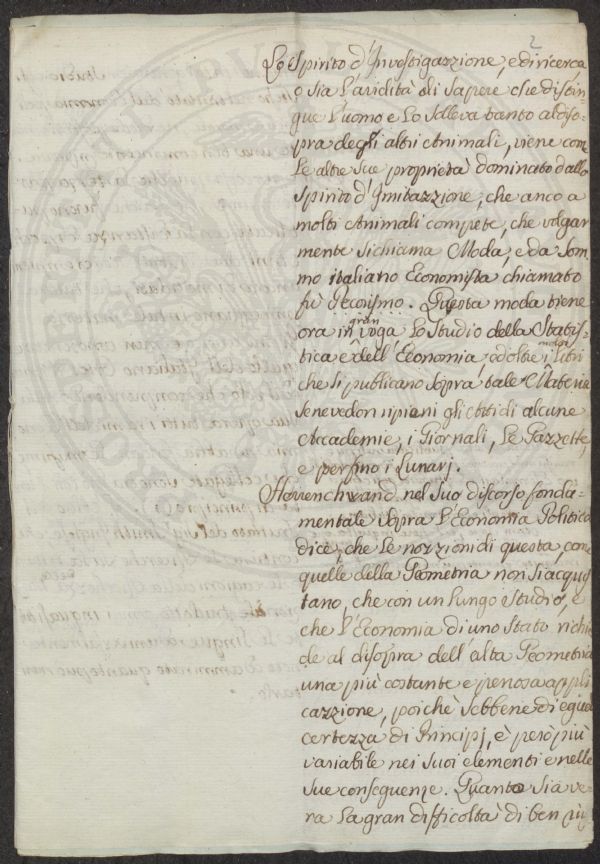 2
Lo Spirito d'Investigazzione, e di ricerca,
o sia l'avidità di Sapere che distin-
gue l'uomo e lo solleva tanto al diso-
pra degli altri Animali, viene con
le altre sue proprietà dominato dallo
Spirito d'Imitazzione, che anco a
molti Animali compete, che volgar
mente si chiama Moda, e da Som
mo italiano Economista chiamato
fù Pecorismo. Questa moda tiene
ora in gran voga lo Studio della Statis-
tica e dell'Economia, ed oltre i molti Libri
che si publicano sopra tale Materia
se ne vedon ripieni gli Atti di alcune
Accademie, i Giornali, le Gazzette,
e persino i Lunarj.
Herrenchwand nel suo discorso fonda-
mentale sopra l'Economia Politica
dice, che le nozzioni di questa, come
quelle della Geometria non si acqus
tano, che con un lungo studio, e
che l'Economia di uno Stato richie
de al disopra dell'alta Geometria
una più costante e penosa appli
cazzione, poichè sebbene di egual
certezza di Principj, è però più
variabile nei suoi elementi e nelle
sue conseguenze. Quanto sia ve-
ra la gran difficoltà di ben